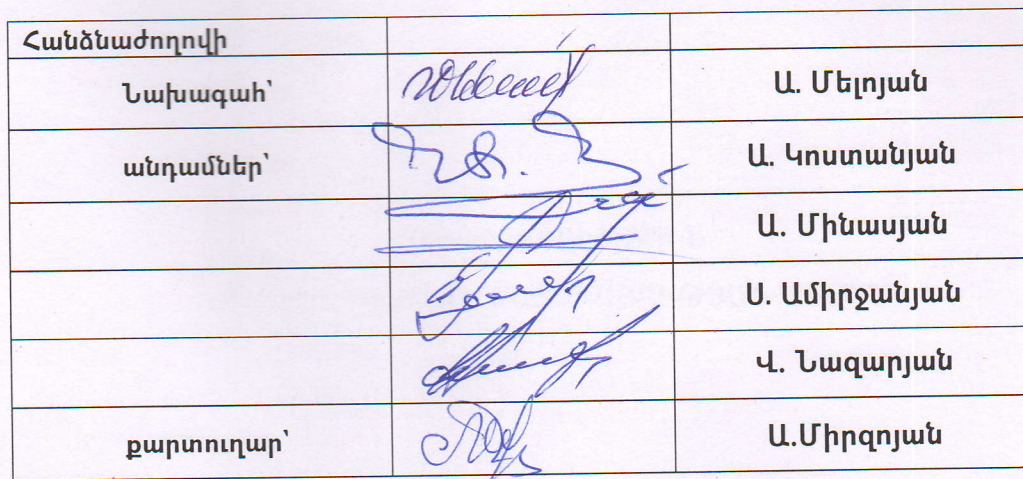 Հանձնաժողովի
Նախագահ՝ Ա. Մելոյան
անդամներ՝ Ա. Կոստանյան
Ա. Մինասյան
Ս. Ամիրջանյան
Վ. Նազարյան
քարտուղար՝ Ա.Միրզոյան